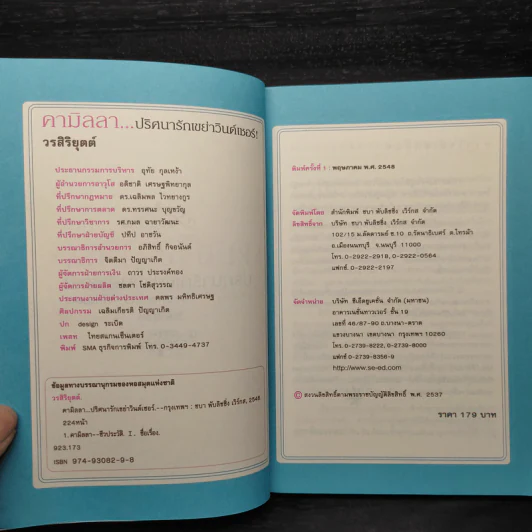 คามิลลา...ปริศนารักเขย่าวินด์เซอร์!
วรสิริยุตต์
ประธานกรรมการบริหาร อุทัย กุลเหง้า
ผู้อำนวยการอาวุโส อติชาติ เศรษฐพิทยากุล
ที่ปรึกษากฎหมาย ดร.เฉลิมพล ไวทยางกูร
ที่ปรึกษาการตลาด ดร.ทรรศนะ บุญขวัญ
ที่ปรึกษาวิชาการ รศ.กมล ฉายาวัฒนะ
ที่ปรึกษาฝ่ายบัญชี ปทีป อาชวัน
บรรณาธิการอำนวยการ อภิสิทธิ์ กิจอนันต์
บรรณาธิการ จิตติมา ปัญญาเกิด
ผู้จัดการฝ่ายการเงิน ถาวร ประรงค์ทอง
ผู้จัดการฝ่ายผลิต ชลดา โชติสุวรรณ
ประสานงานฝ่ายต่างประเทศ ดลพร มหิทธิเศรษฐ
ศิลปกรรม เฉลิมเกียรติ ปัญญาเกิด
ปก design ระเบิด
เพลท ไทยสแกนเซ็นเตอร์
พิมพ์ SMA ธุรกิจการพิมพ์ โทร. 0-3449-4737
ข้อมูลทางบรรณานุกรมของหอสมุดแห่งชาติ
วรสิริยุตต์.
คามิลลา...ปริศนารักเขย่าวินด์เซอร์.--กรุงเทพฯ : ชบา พับลิชชิ่ง เวิร์กส, 2548
224หน้า
1.คามิลลา--ชีวประวัติ I. ชื่อเรื่อง.
923.173
ISBN 974-93082-9-8
พิมพ์ครั้งที่ 1 พฤษภาคม พ.ศ. 2548
จัดพิมพ์โดย สำนักพิมพ์ ชบา พับลิชชิ่ง เวิร์กส จำกัด
ลิขสิทธิ์จาก บริษัท ชบา พับลิชชิ่ง เวิร์กส จำกัด
102/15 ม.ลัดดารมย์ ซ.10 ถ.รัตนาธิเบศร์ ต.ไทรม้า
อ.เมืองนนทบุรี จ.นนทบุรี 11000
โทร. 0-2922-2918, 0-2922-0564
แฟกซ์. 0-2922-2197
จัดจำหน่าย บริษัท ซีเอ็ดยูเคชั่น จำกัด (มหาชน)
อาคารเนชั่นทาวเวอร์ ชั้น 19
เลขที่ 46/87-90 ถ.บางนา-ตราด
แขวงบางนา เขตบางนา กรุงเทพฯ 10260
โทร. 0-2739-8222, 0-2739-8000
แฟกซ์ 0-2739-8356-9
http://www.se-ed.com
© สงวนลิขสิทธิ์ตามพระราชบัญญัติลิขสิทธิ์ พ.ศ. 2537
ราคา 179 บาท